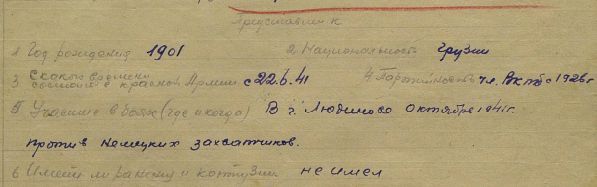 Представлен к
1 Год рождения 1901 2 Национальность Грузин
3 С какого времени состоит в красной Армии с 22.6.41 4 Партийность чл. Вкпб с 1926 г
5 Участие в боях (где и когда) В г. Людиново октября 1941г.
против немецких захватчиков.
6 Имеет ли ранения и контузии не имел